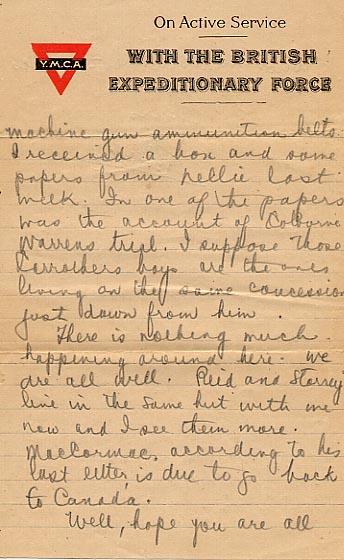 On Active Service
Y.M.C.A.
WITH THE BRITISH
EXPEDITIONARY FORCE
machine gun ammunition belts.
I received a box and some
papers from Nellie last
week. In one of the papers
was the account of Colburne
Warrens trial. I suppose those
Carrothers boys are the ones
living on the same concession
just down from him.
There is nothing much
happening around here. We
are all well. Reid and Storrey
live in the same hut with me
now and I see them more.
MacCormac, according to his
last letter, is due to go back
to Canada.
Well, hope you are all